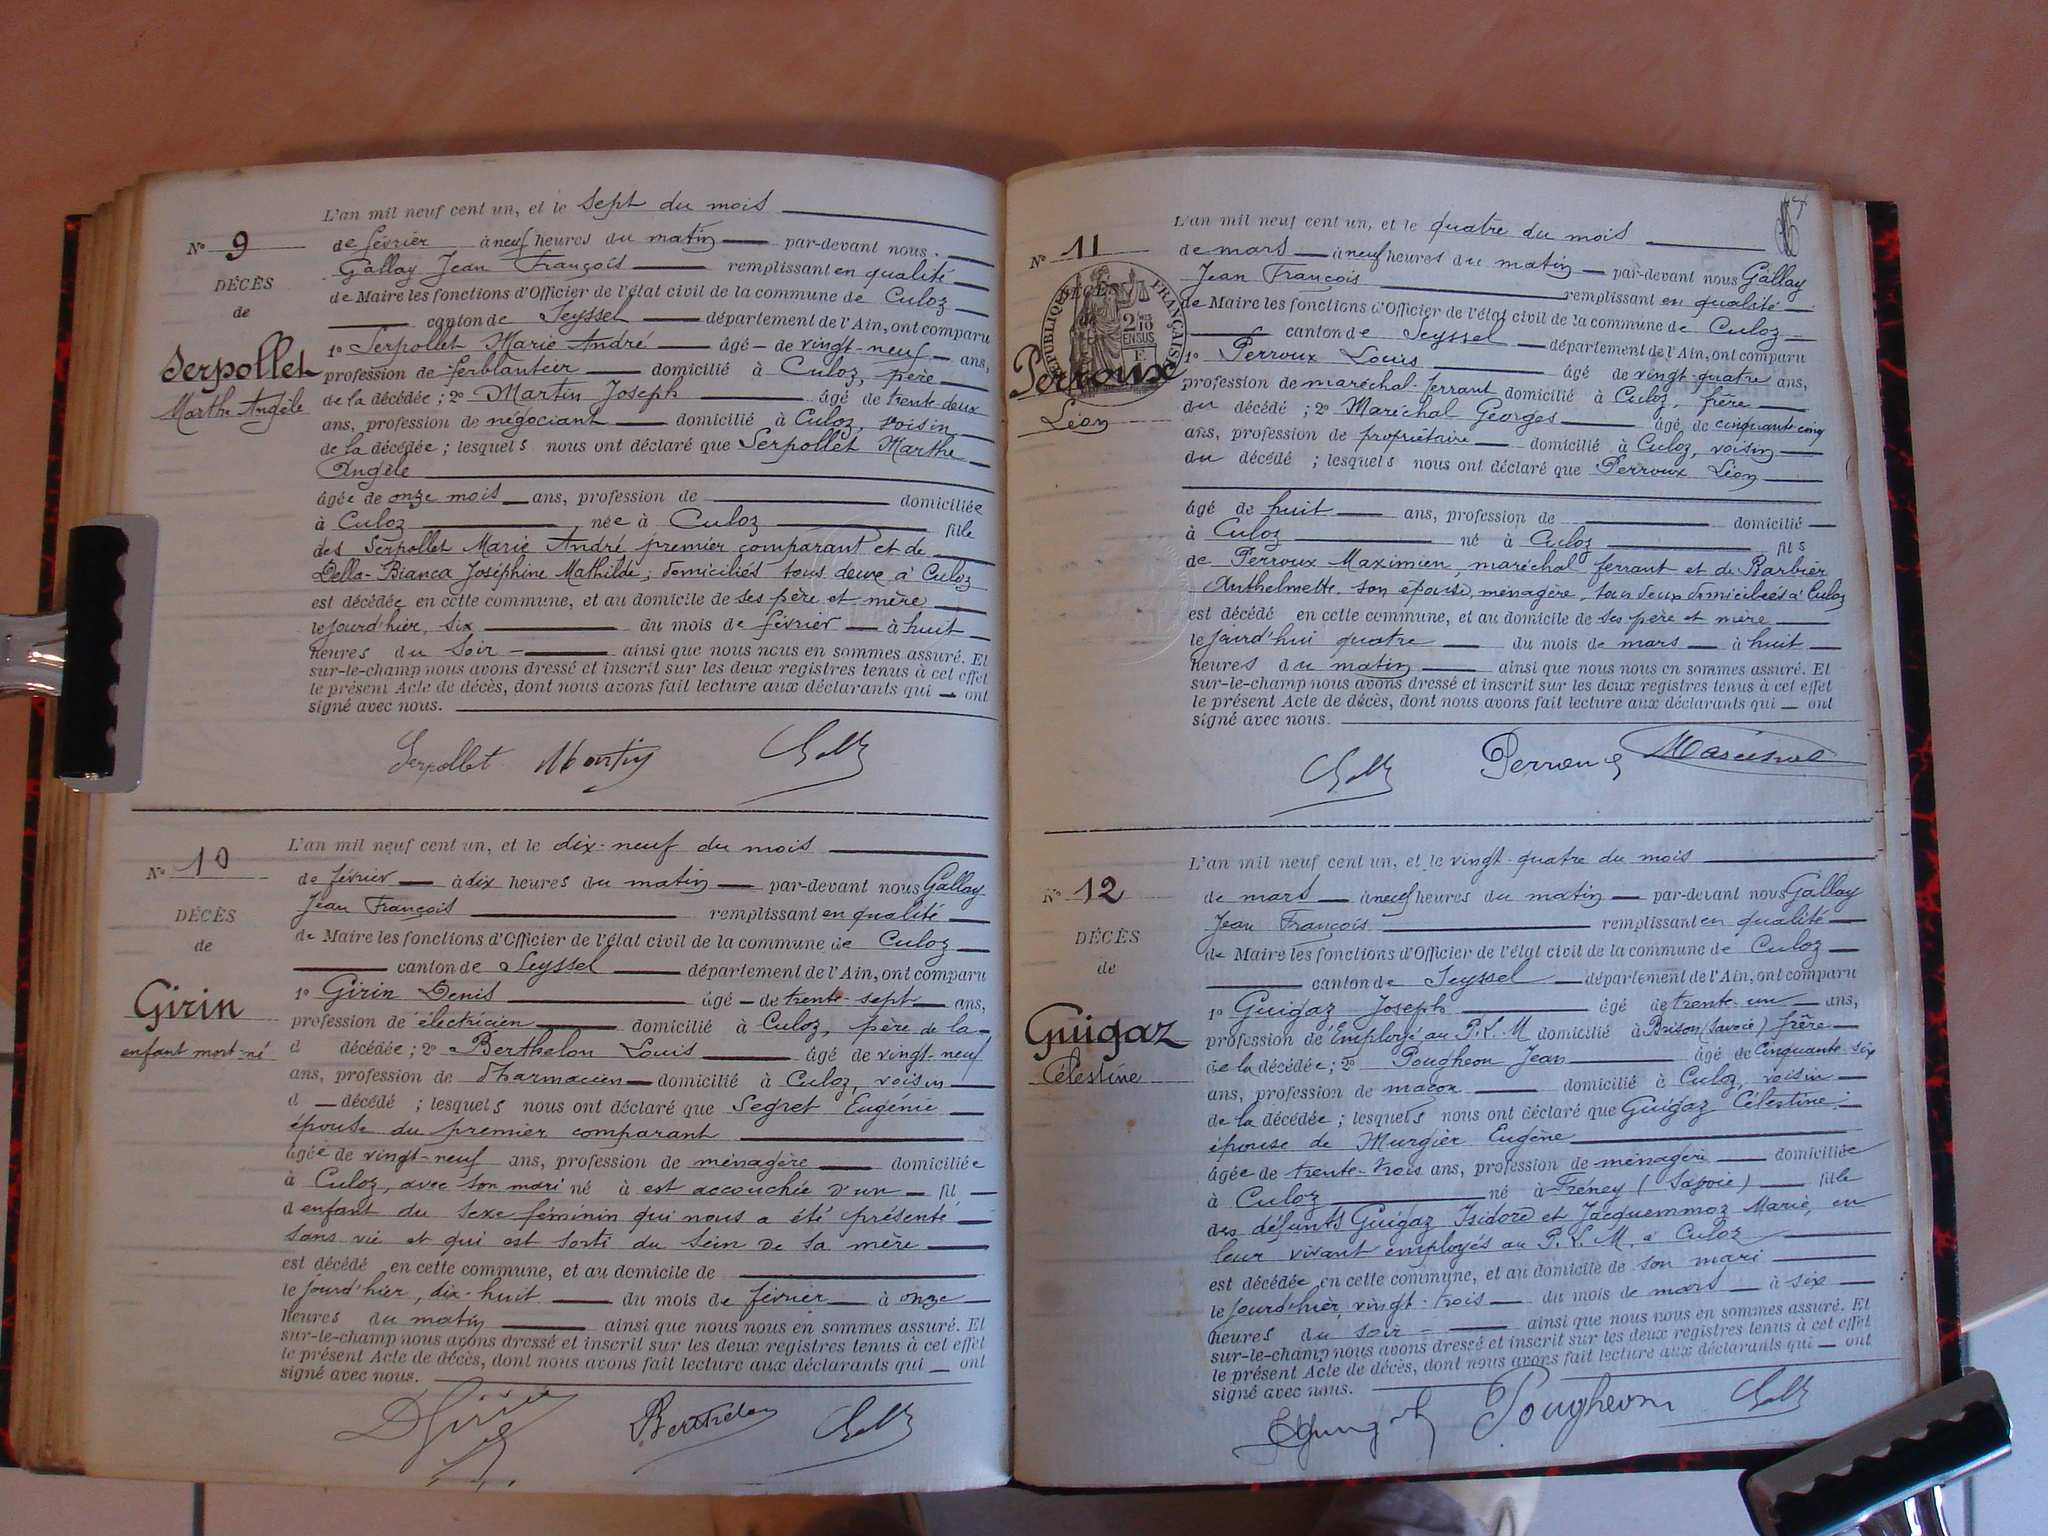 L'an mil neuf cent un, et le sept du mois
N° 9
de février à neuf heures du matin par-devant nous
Gallay Jean François remplissant en qualité
DÉCÈS
de Maire les fonctions d'Officier de l'état civil de la commune de Culoz
de
canton de Seyssel département de l'Ain, ont comparu
Serpollet
1° Serpollet Marie André âgé de vingt-neuf ans,
profession de ferblantier domicilié à Culoz, père
Marthe Angèle
de la décédée ; 2° Martin Joseph âgé de trente-deux
ans, profession de négociant domicilié à Culoz, voisin
de la décédée ; lesquels nous ont déclaré que Serpollet Marthe
Angèle
âgée de onze mois ans, profession de domiciliée
à Culoz née à Culoz fille
des Serpollet Marie André, premier comparant et de
Della-Bianca Joséphine Mathilde, domiciliés tous deux à Culoz
est décédée en cette commune, et au domicile de ses père et mère
le jourd'hier, six du mois de février à huit
heures du soir ainsi que nous nous en sommes assuré. Et
sur-le-champ nous avons dressé et inscrit sur les deux registres tenus à cet effet
le présent Acte de décès, dont nous avons fait lecture aux déclarants qui ont
signé avec nous.
Serpollet Martin
L'an mil neuf cent un, et le dix-neuf du mois
N° 10
de février à dix heures du matin par-devant nous Gallay
Jean François remplissant en qualité
DÉCÈS
de Maire les fonctions d'Officier de l'état civil de la commune de Culoz
de
canton de Seyssel département de l'Ain, ont comparu
Girin
1° Girin Denis âgé de trente-sept ans,
profession de électricien domicilié à Culoz, père de la
enfant mort-né
d décédée ; 2° Berthelon Louis âgé de vingt-neuf
ans, profession de Pharmacien domicilié à Culoz, voisin
d décédé ; lesquels nous ont déclaré que Segret Eugénie
épouse du premier comparant
âgée de vingt-neuf ans, profession de ménagère domiciliée
à Culoz, avec son mari né à est accouchée d'un fil
d enfant du sexe féminin qui nous a été présenté
sans vie et qui est sorti du sein de sa mère
est décédé en cette commune, et au domicile de
le jourd'hier, dix-huit du mois de février à onze
heures du matin ainsi que nous nous en sommes assuré. Et
sur-le-champ nous avons dressé et inscrit sur les deux registres tenus à cet effet
le présent Acte de décès, dont nous avons fait lecture aux déclarants qui ont
signé avec nous.
DGirin Berthelon
L'an mil neuf cent un, et le quatre du mois
N° 11
de mars à neuf heures du matin par-devant nous Gallay
Jean François remplissant en qualité
DÉCÈS
RÉPUBLIQUE FRANÇAISE
2/10 EN SUS
de Maire les fonctions d'Officier de l'état civil de la commune de Culoz
canton de Seyssel département de l'Ain, ont comparu
Perroux
1° Perroux Louis âgé de vingt-quatre ans,
profession de maréchal-ferrant domicilié à Culoz, frère
Léon
du décédé ; 2° Maréchal Georges âgé de cinquante-cinq
ans, profession de propriétaire domicilié à Culoz, voisin
du décédé ; lesquels nous ont déclaré que Perroux Léon
âgé de huit ans, profession de domicilié
à Culoz né à Culoz fils
de Perroux Maximien, maréchal ferrant et de Barbier
Anthelmette, son épouse, ménagère, tous deux domiciliés à Culoz
est décédé en cette commune, et au domicile de ses père et mère
le jourd'hui quatre du mois de mars à huit
heures du matin ainsi que nous nous en sommes assuré. Et
sur-le-champ nous avons dressé et inscrit sur les deux registres tenus à cet effet
le présent Acte de décès, dont nous avons fait lecture aux déclarants qui ont
signé avec nous.
Perroux Maréchal
L'an mil neuf cent un, et le vingt-quatre du mois
N° 12
de mars à neuf heures du matin par-devant nous Gallay
Jean François remplissant en qualité
DÉCÈS
de Maire les fonctions d'Officier de l'état civil de la commune de Culoz
de
canton de Seyssel département de l'Ain, ont comparu
Guigaz
1° Guigaz Joseph âgé de trente-un ans,
profession de Employé au P.L.M domicilié à Brison (Savoie) frère
Célestine
de la décédée ; 2° Pougheon Jean âgé de cinquante-six
ans, profession de maçon domicilié à Culoz, voisin
de la décédée ; lesquels nous ont déclaré que Guigaz Célestine,
épouse de Murgier Eugène
âgée de trente-trois ans, profession de ménagère domiciliée
à Culoz né à Fréney (Savoie) fille
des défunts Guigaz Isidore et Jacquemmoz Marie, en
leur vivant employés au P.L.M. à Culoz
est décédée en cette commune, et au domicile de son mari
le jourd'hier, vingt-trois du mois de mars à six
heures du soir ainsi que nous nous en sommes assuré. Et
sur-le-champ nous avons dressé et inscrit sur les deux registres tenus à cet effet
le présent Acte de décès, dont nous avons fait lecture aux déclarants qui ont
signé avec nous.
Pougheon